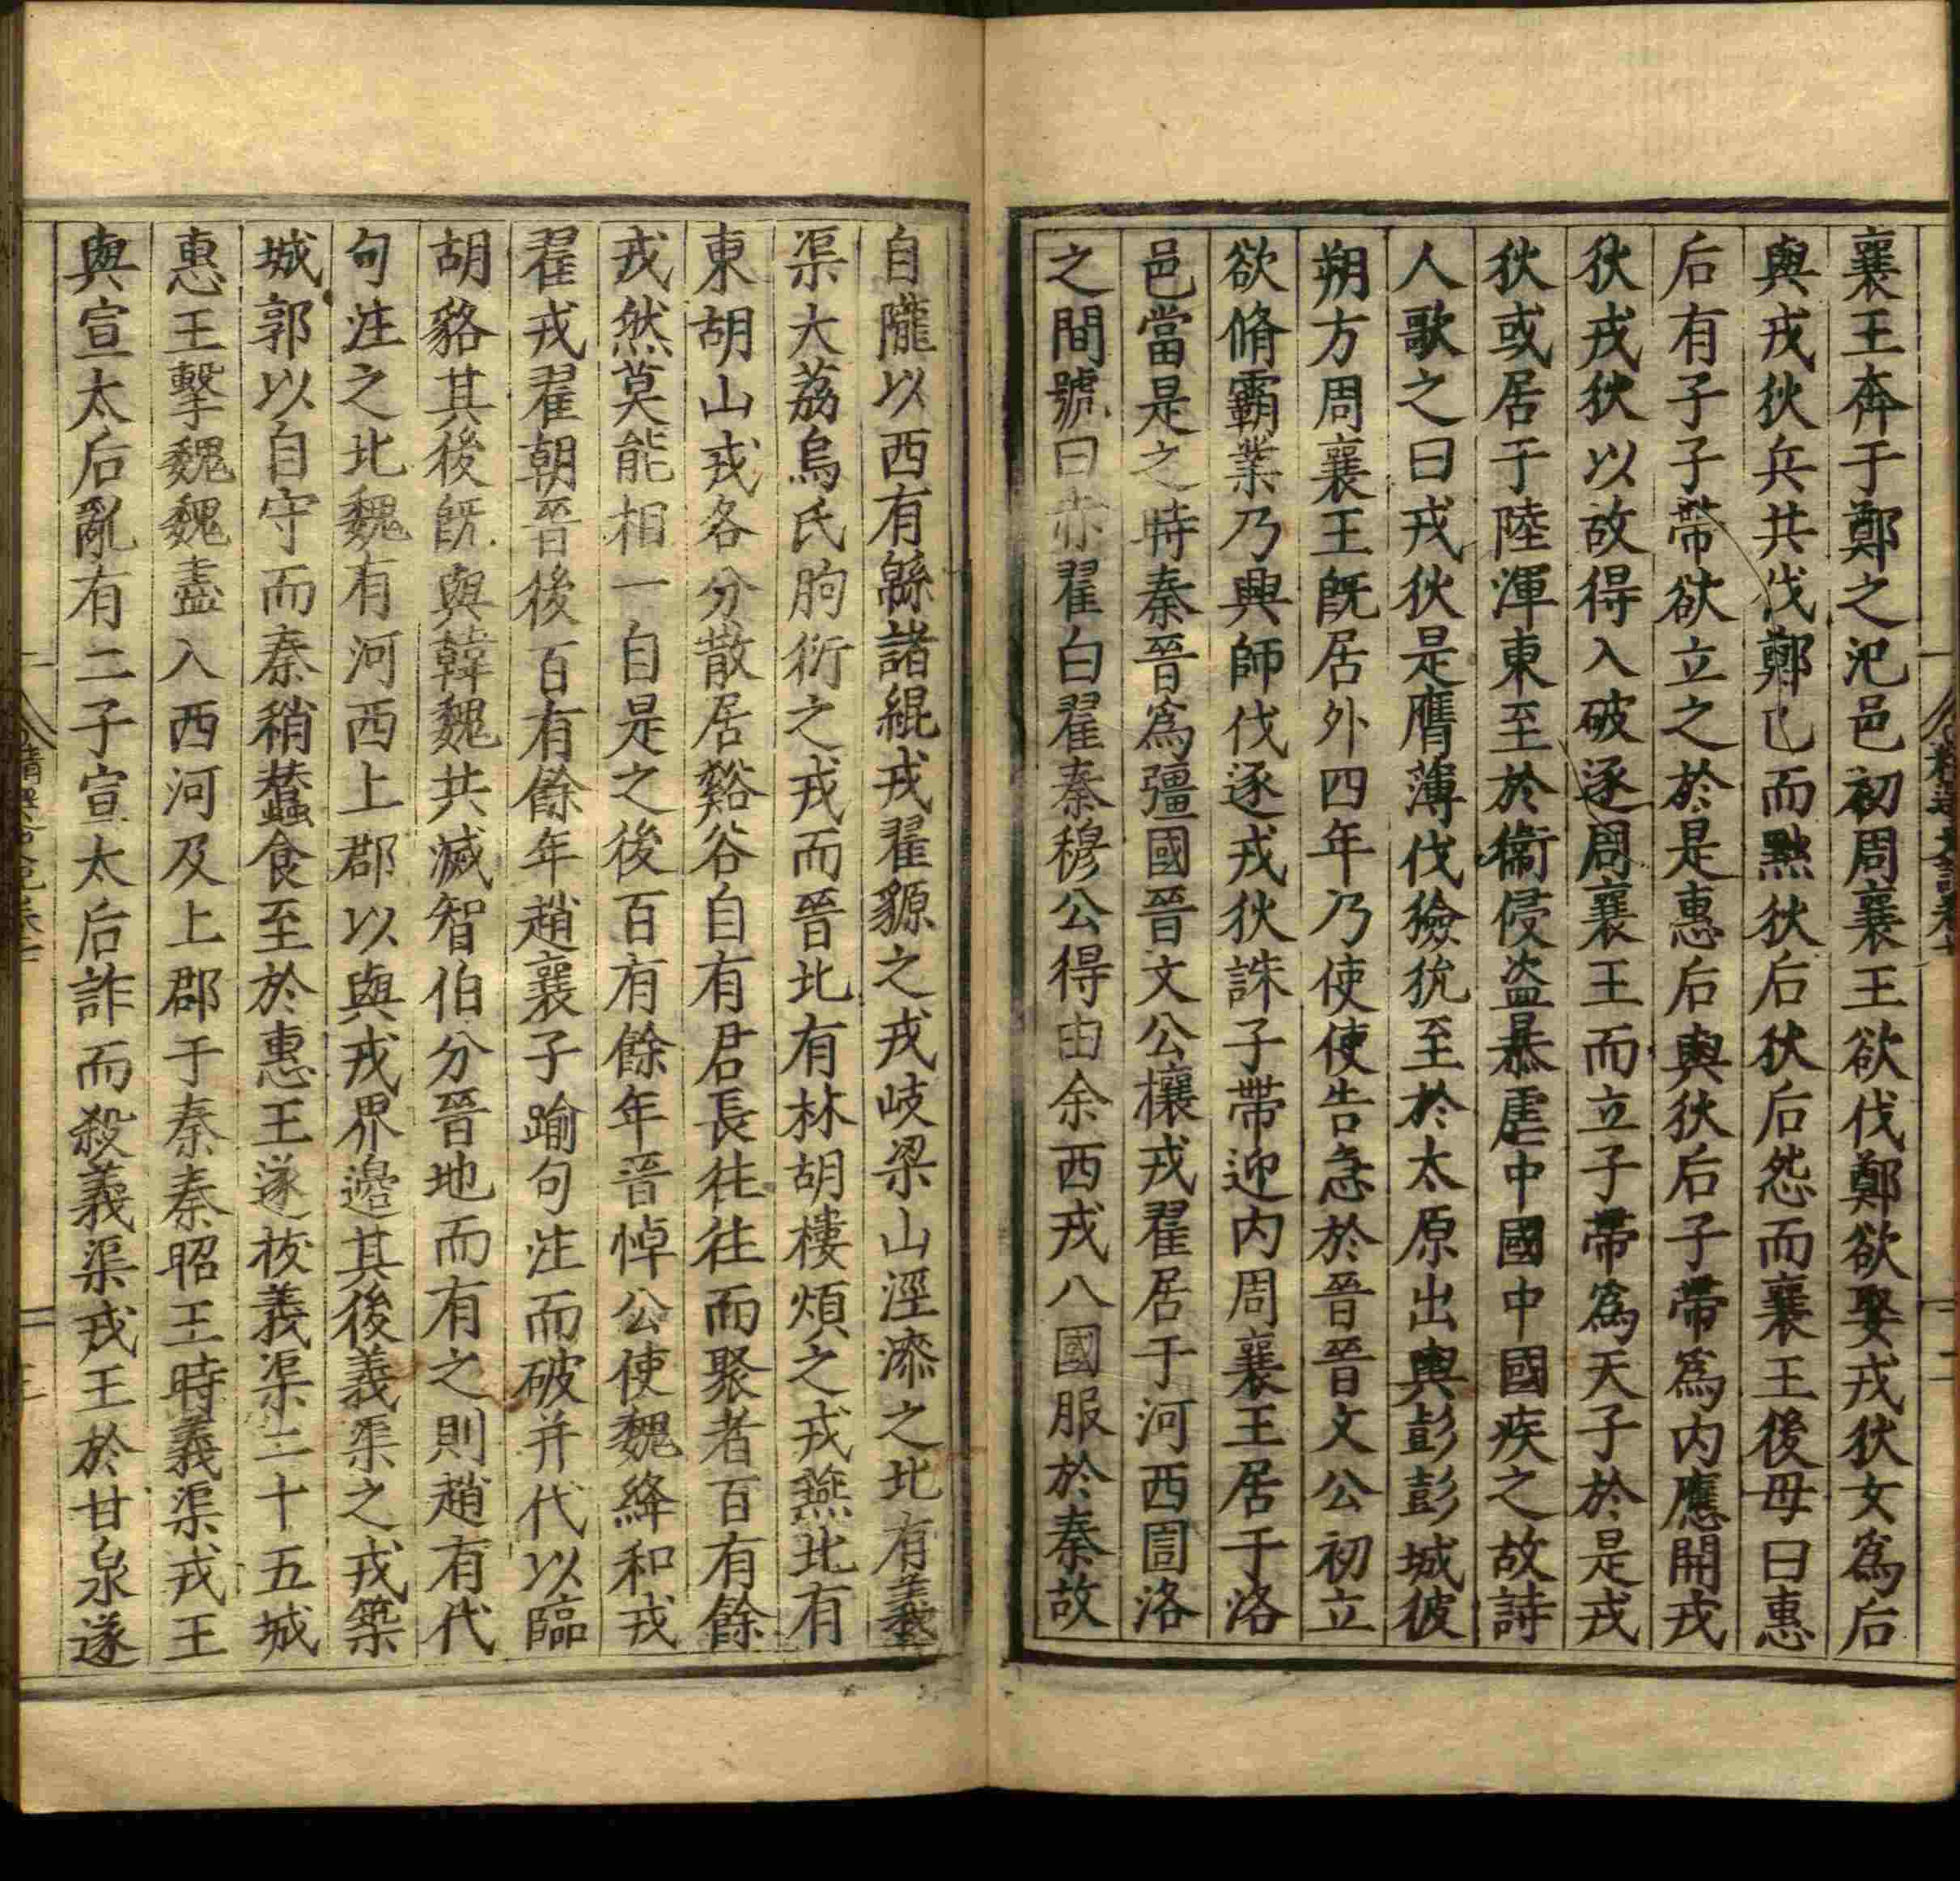 襄王奔于鄭之汜邑初周襄王欲伐鄭欲娶戎狄女爲后
與戎狄兵共伐鄭已而黜狄后狄后怨而襄王後母曰惠
后有子子帶欲立之於是惠后與狄后子帶爲內應開戎
狄戎狄以故得入破逐周襄王而立子帶爲天子於是戎
狄或居于陸渾東至於衞侵盜暴虐中國中國疾之故詩
人歌之曰戎狄是膺薄伐獫狁至於太原出輿彭彭城彼
朔方周襄王旣居外四年乃使使告急於晉晉文公初立
欲脩霸業乃興師伐逐戎狄誅子帶迎內周襄王居于洛
邑當是之時秦晉爲彊國晉文公攘戎翟居于河西圁洛
之間號曰赤翟白翟秦穆公得由余西戎八國服於秦故
自隴以西有緜諸緄戎翟䝠之戎岐梁山涇漆之北有義
渠大荔烏氏朐衍之戎而晉北有林胡樓煩之戎燕北有
東胡山戎各分散居谿谷自有君長往往而聚者百有餘
戎然莫能相一自是之後百有餘年晉悼公使魏絳和戎
翟戎翟朝晉後百有餘年趙襄子踰句注而破并代以臨
胡貉其後旣與韓魏共滅智伯分晉地而有之則趙有代
句注之北魏有河西上郡以與戎界邊其後義渠之戎築
城郭以自守而秦稍蠶食至於惠王遂拔義渠二十五城
惠王擊魏魏盡入西河及上郡于秦秦昭王時義渠戎王
與宣太后亂有二子宣太后詐而殺義渠戎王於甘泉遂